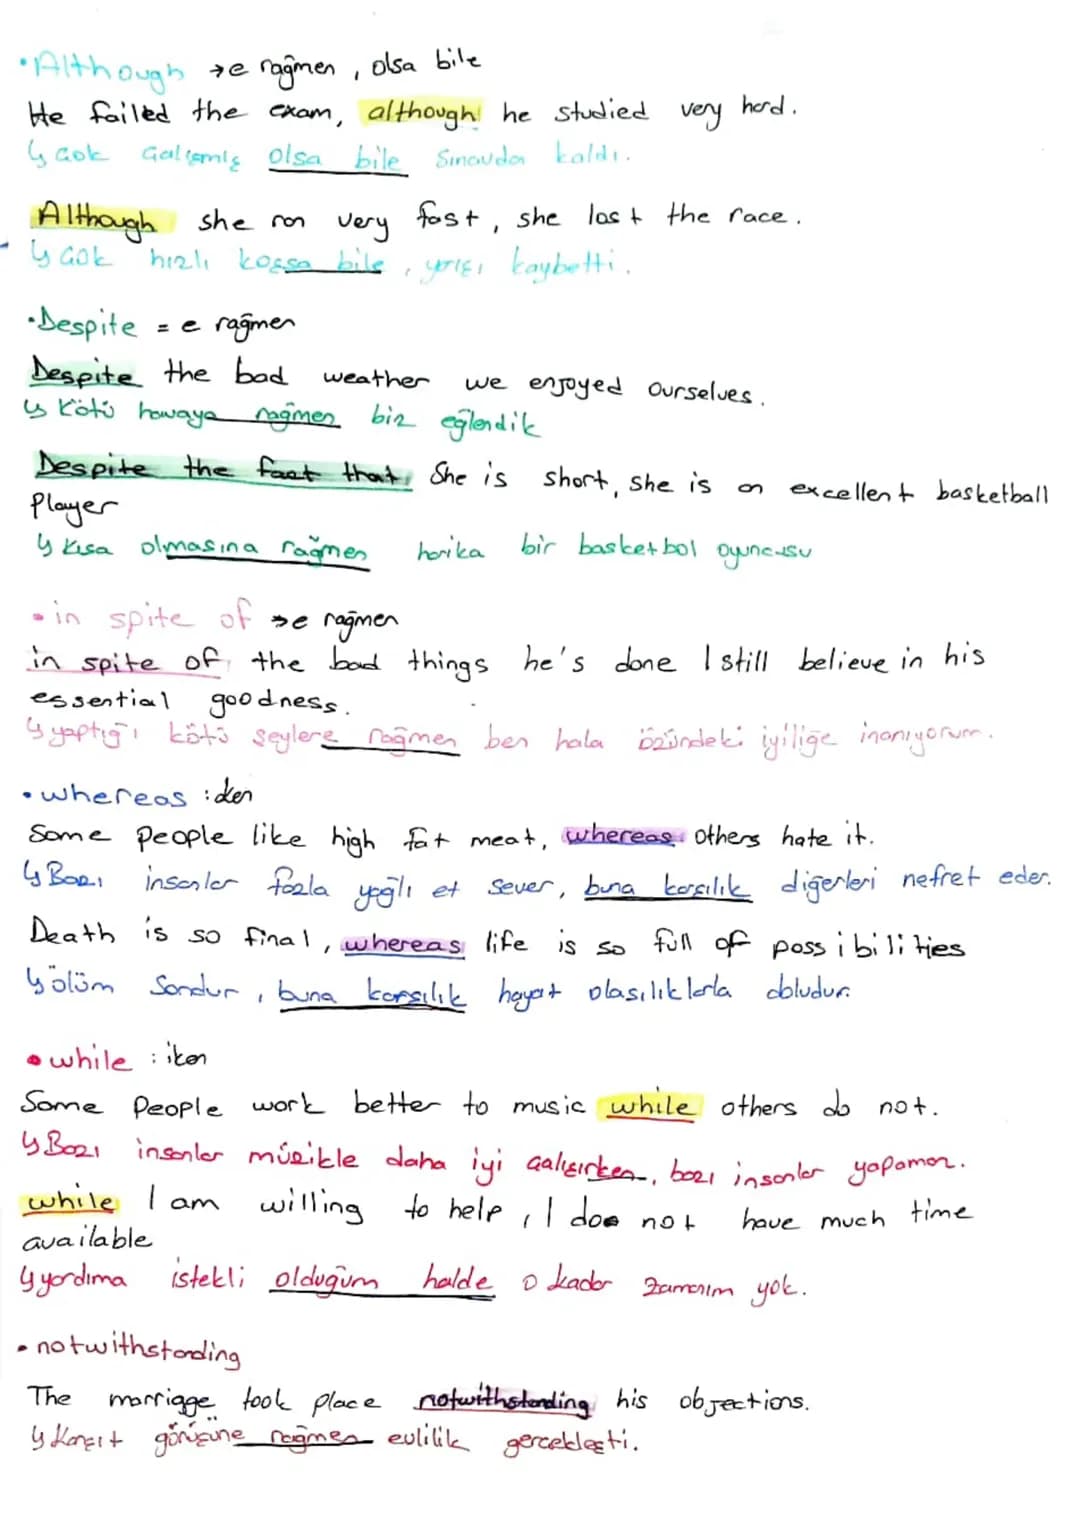 • Although → e rağmen , olsa bile
He failed the exam, although he studied very hard.
↳ Çok Çalışmış olsa bile Sınavdan kaldı.
Although she ran very fast, she lost the race.
↳ Çok hızlı koşsa bile, yarışı kaybetti.
• Despite = e rağmen
Despite the bad weather we enjoyed ourselves.
↳ Kötü havaya rağmen biz eğlendik
Despite the fact that She is short, she is an excellent basketball
Player
↳ Kısa olmasına rağmen harika bir basketbol oyuncusu
• in spite of → e rağmen
in spite of the bad things he's done I still believe in his
essential goodness.
↳ yaptığı kötü şeylere rağmen ben hala özündeki iyiliğe inanıyorum.
• whereas : ken
Some people like high fat meat, whereas others hate it.
↳ Bazı insanlar fazla yağlı et sever, buna karşılık diğerleri nefret eder.
Death is so final, whereas life is so full of possibilities
↳ ölüm Sondur, buna karşılık hayat olasılıklarla doludur.
• while : iken
Some People work better to music while others do not.
↳ Bazı insanlar müzikle daha iyi çalışırken, bazı insanlar yapamaz.
while I am willing to help, I do not have much time
available
↳ yardıma istekli olduğum halde o kadar zamanım yok.
• notwithstanding
The marriage took place notwithstanding his objections.
↳ Karşıt görüşüne rağmen evlilik gerçekleşti.